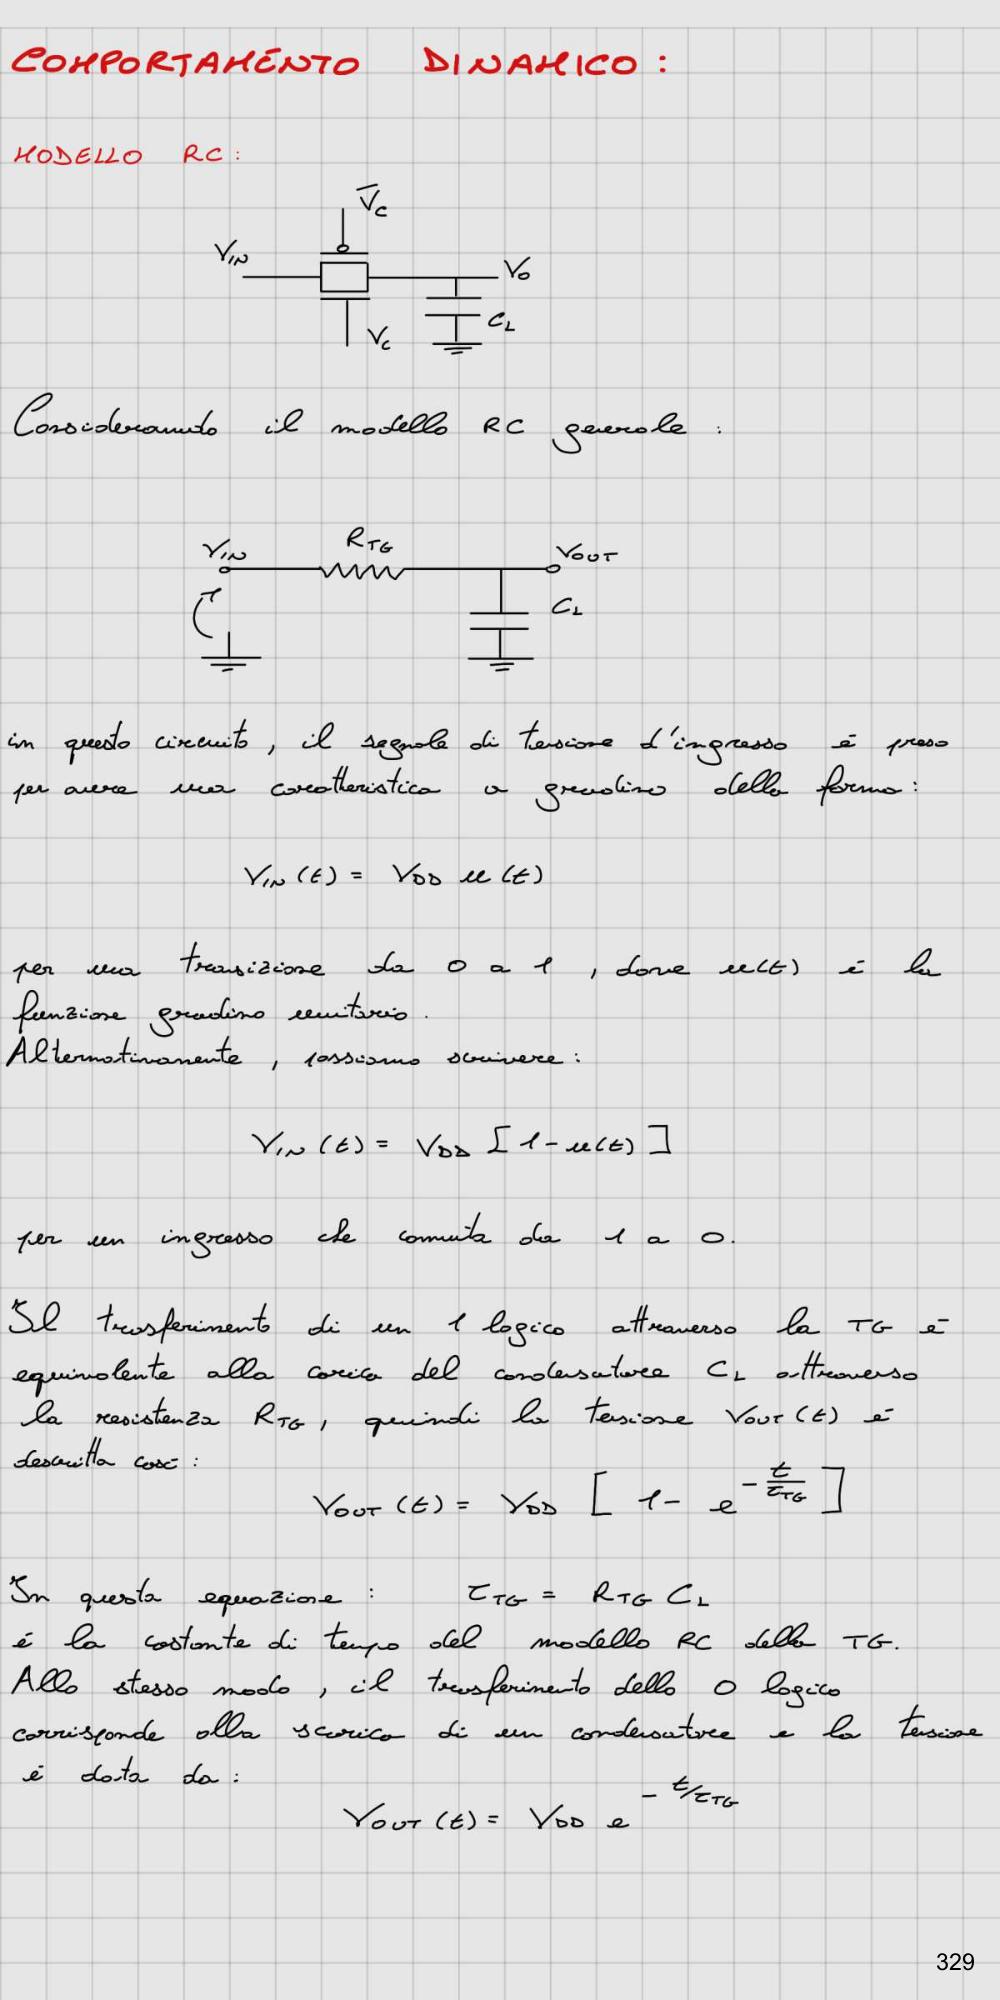 COMPORTAMENTO DINAMICO:
MODELLO RC:
V̅c
VIN
Vo
CL
Vc
Considerando il modello RC generale:
VIN
RTG
VOUT
CL
in questo circuito, il segnale di tensione d'ingresso è preso
per avere una caratteristica a gradino della forma:
VIN (t) = VDD u(t)
per una transizione da 0 a 1, dove u(t) è la
funzione gradino unitario.
Alternativamente, possiamo scrivere:
VIN (t) = VDD [1-u(t)]
per un ingresso che commuta da 1 a 0.
Il trasferimento di un 1 logico attraverso la TG è
equivalente alla carica del condensatore CL attraverso
la resistenza RTG, quindi la tensione VOUT (t) è
descritta così:
VOUT (t) = VDD [1 - e^{-t/τTG}]
In questa equazione: τTG = RTG CL
è la costante di tempo del modello RC della TG.
Allo stesso modo, il trasferimento dello 0 logico
corrisponde alla scarica di un condensatore e la tensione
è data da:
VOUT (t) = VDD e^{-t/τTG}
329